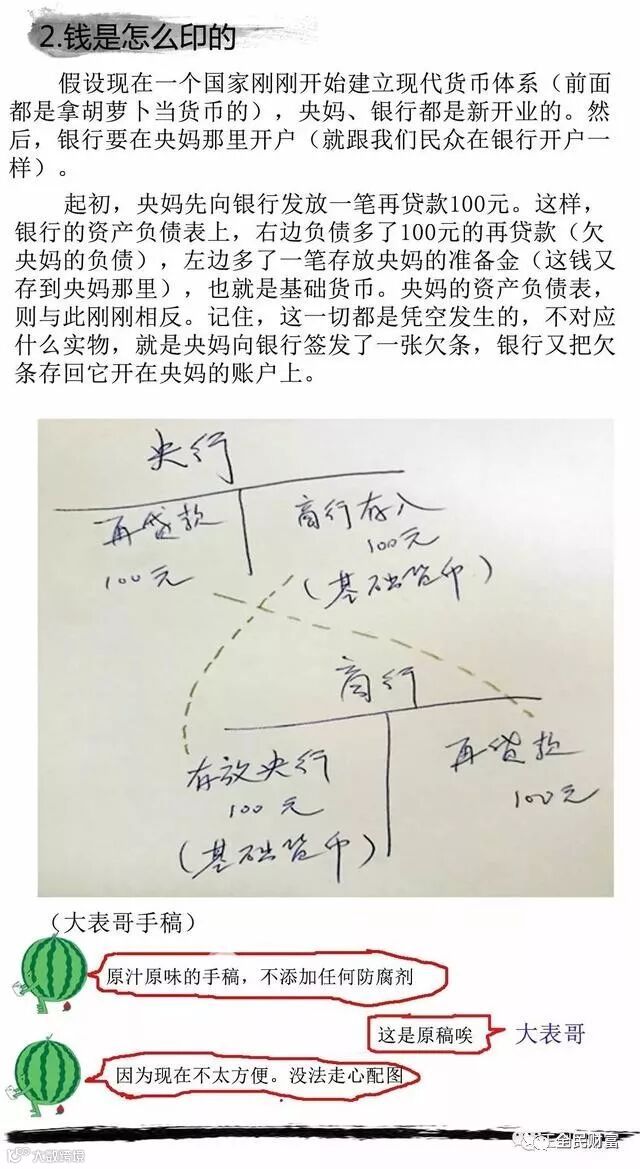 2.钱是怎么印的
假设现在一个国家刚刚开始建立现代货币体系（前面
都是拿胡萝卜当货币的），央妈、银行都是新开业的。然
后，银行要在央妈那里开户（就跟我们民众在银行开户一
样）。
起初，央妈先向银行发放一笔再贷款100元。这样，
银行的资产负债表上，右边负债多了100元的再贷款（欠
央妈的负债），左边多了一笔存放央妈的准备金（这钱又
存到央妈那里），也就是基础货币。央妈的资产负债表，
则与此刚刚相反。记住，这一切都是凭空发生的，不对应
什么实物，就是央妈向银行签发了一张欠条，银行又把欠
条存回它开在央妈的账户上。
央行
再贷款
100元
商行存入
100元
（基础货币）
商行
存放央行
100元
（基础货币）
再贷款
100元
（大表哥手稿）
原汁原味的手稿，不添加任何防腐剂
这是原稿唉
大表哥
因为现在不太方便。没法走心配图
全民财富
大数跨境